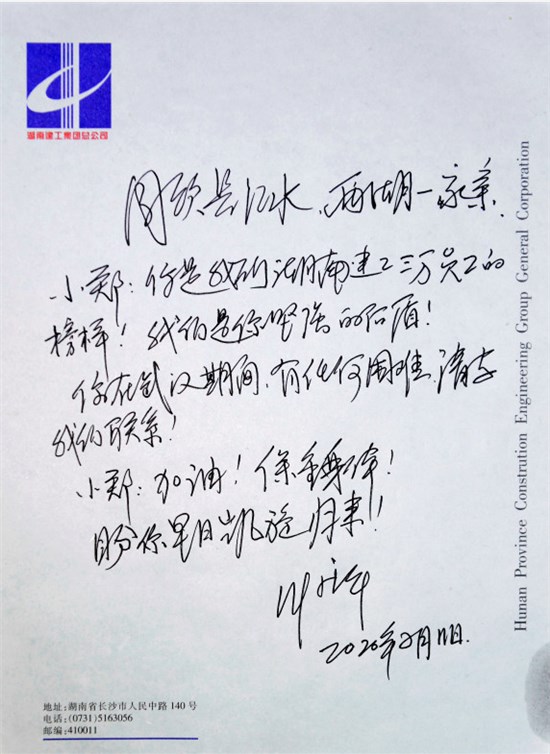 湖南建工集团总公司
同饮长江水、两湖一家亲
小郑：你是我们湖南建工三万员工的
榜样！我们是你坚强的后盾！
你在武汉期间，有任何困难，请与
我们联系！
小郑：加油！保重身体！
盼你早日凯旋归来！
叶
2020年2月11日.
Hunan Province Constrution Engineering Group General Corporation
地址：湖南省长沙市人民中路 140 号
电话：(0731)5163056
邮编：410011